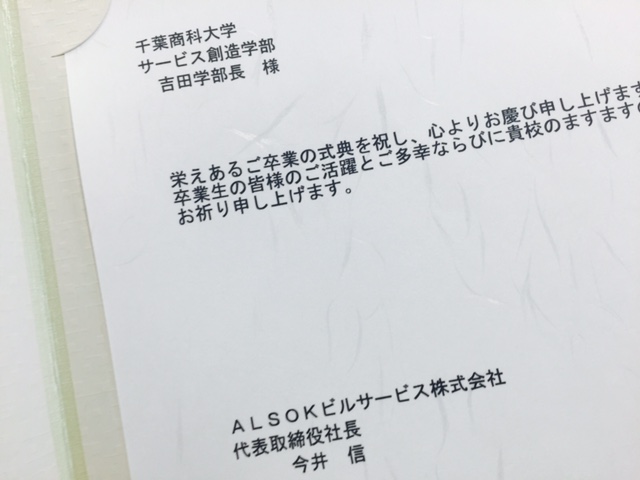 千葉商科大学
サービス創造学部
吉田学部長　様
栄えあるご卒業の式典を祝し、心よりお慶び申し上げます
卒業生の皆様のご活躍とご多幸ならびに貴校のますますの
お祈り申し上げます。
ＡＬＳＯＫビルサービス株式会社
代表取締役社長
今井　信